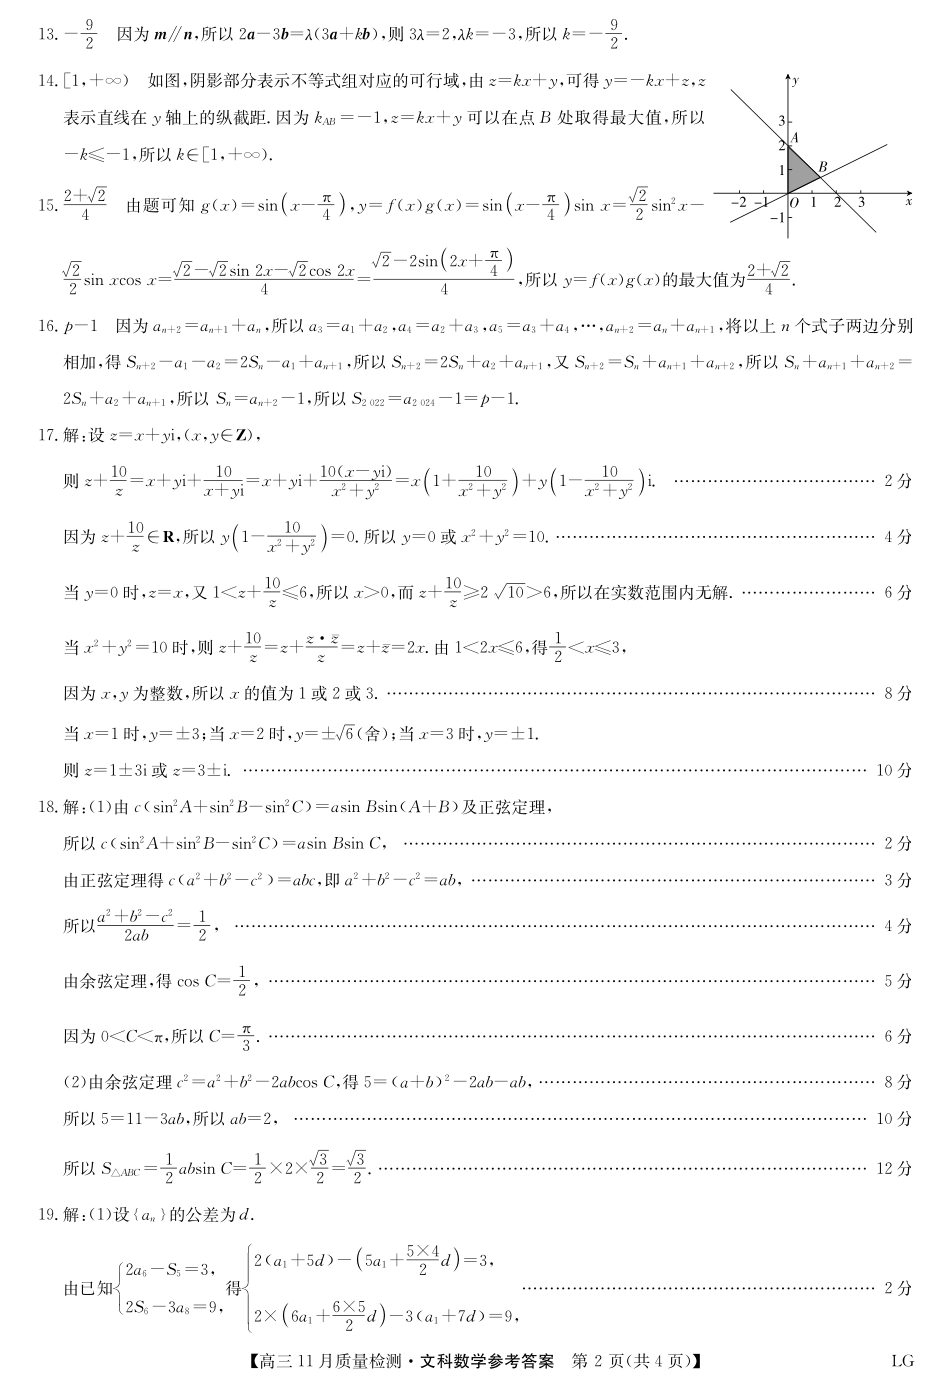 13. -9/2 因为 m∥n,所以 2a-3b=λ(3a+kb),则 3λ=2,λk=-3,所以 k=-9/2.
14. [1,+∞) 如图,阴影部分表示不等式组对应的可行域,由 z=kx+y,可得 y=-kx+z,z
表示直线在 y 轴上的纵截距.因为 k_AB=-1,z=kx+y 可以在点 B 处取得最大值,所以
-k≤-1,所以 k∈[1,+∞).
y
3
A
2
1
B
-2 -1 O 1 2 3 x
-1
15. (2+√2)/4 由题可知 g(x)=sin(x-π/4),y=f(x)g(x)=sin(x-π/4)sin x=(√2/2)sin²x-
(√2/2)sin xcos x=(√2-√2sin 2x-√2cos 2x)/4=(√2-2sin(2x+π/4))/4,所以 y=f(x)g(x)的最大值为(2+√2)/4.
16. p-1 因为 a_{n+2}=a_{n+1}+a_n,所以 a₃=a₁+a₂,a₄=a₂+a₃,a₅=a₃+a₄,…,a_{n+2}=a_n+a_{n+1},将以上 n 个式子两边分别
相加,得 S_{n+2}-a₁-a₂=2S_n-a₁+a_{n+1},所以 S_{n+2}=2S_n+a₂+a_{n+1},又 S_{n+2}=S_n+a_{n+1}+a_{n+2},所以 S_n+a_{n+1}+a_{n+2}=
2S_n+a₂+a_{n+1},所以 S_n=a_{n+2}-1,所以 S_{2 022}=a_{2 024}-1=p-1.
17. 解:设 z=x+yi,(x,y∈Z),
则 z+10/z=x+yi+10/(x+yi)=x+yi+10(x-yi)/(x²+y²)=x(1+10/(x²+y²))+y(1-10/(x²+y²))i. …… 2 分
因为 z+10/z∈R,所以 y(1-10/(x²+y²))=0.所以 y=0 或 x²+y²=10. …… 4 分
当 y=0 时,z=x,又 1<z+10/z≤6,所以 x>0,而 z+10/z≥2√10>6,所以在实数范围内无解. …… 6 分
当 x²+y²=10 时,则 z+10/z=z+(z·z̄)/z=z+z̄=2x.由 1<2x≤6,得1/2<x≤3,
因为 x,y 为整数,所以 x 的值为 1 或 2 或 3. …… 8 分
当 x=1 时,y=±3;当 x=2 时,y=±√6(舍);当 x=3 时,y=±1.
则 z=1±3i 或 z=3±i. …… 10 分
18. 解:(1)由 c(sin²A+sin²B-sin²C)=asin Bsin(A+B)及正弦定理,
所以 c(sin²A+sin²B-sin²C)=asin Bsin C, …… 2 分
由正弦定理得 c(a²+b²-c²)=abc,即 a²+b²-c²=ab, …… 3 分
所以(a²+b²-c²)/2ab=1/2, …… 4 分
由余弦定理,得 cos C=1/2, …… 5 分
因为 0<C<π,所以 C=π/3. …… 6 分
(2)由余弦定理 c²=a²+b²-2abcos C,得 5=(a+b)²-2ab-ab, …… 8 分
所以 5=11-3ab,所以 ab=2, …… 10 分
所以 S_△ABC=1/2absin C=1/2×2×√3/2=√3/2. …… 12 分
19. 解:(1)设{a_n}的公差为 d.
由已知{2a₆-S₅=3, 2S₆-3a₈=9, 得{2(a₁+5d)-(5a₁+(5×4)/2 d)=3, 2×(6a₁+(6×5)/2 d)-3(a₁+7d)=9, …… 2 分
【高三 11 月质量检测·文科数学参考答案 第 2 页(共 4 页)】 LG